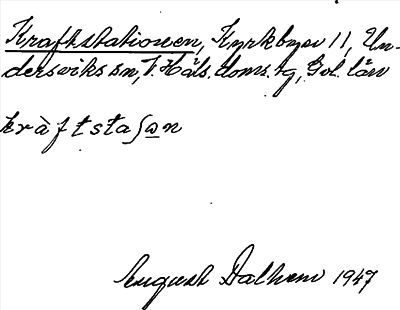 Kraftstationen, Kyrkbyn 11, Un-
dersviks sn, V. Häls. doms. tg, Gvl. län
kràftstaʃωn
August Dalhem 1947